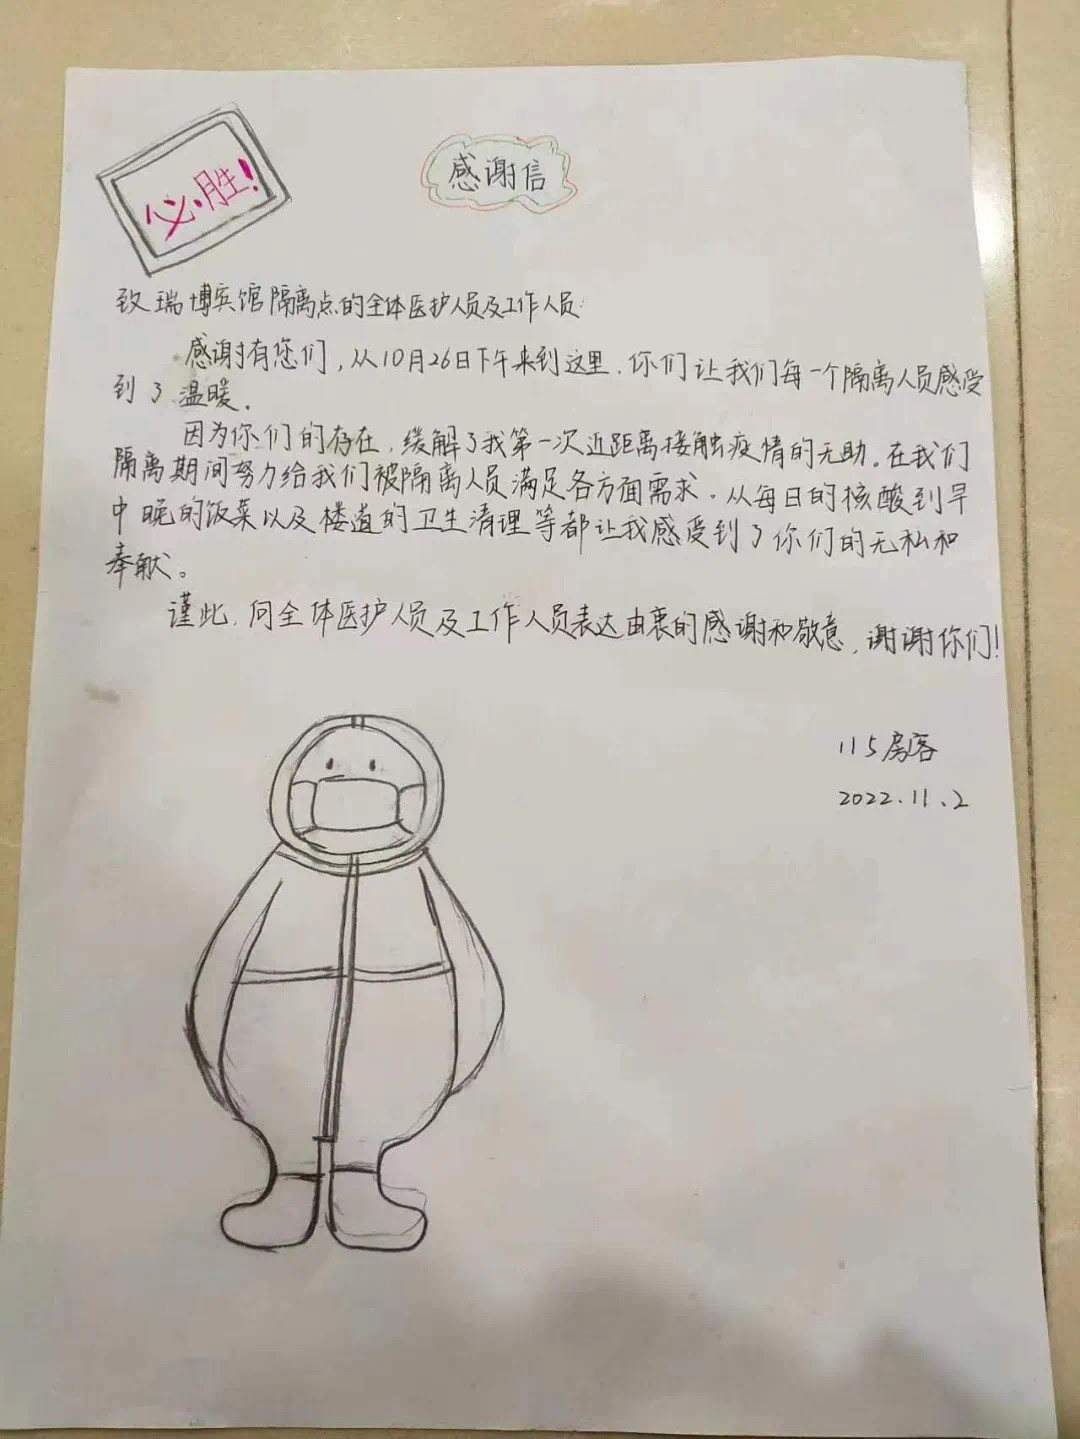 必胜!
感谢信
致瑞博宾馆隔离点的全体医护人员及工作人员:
感谢有您们，从10月26日下午来到这里，你们让我们每一个隔离人员感受
到了温暖.
因为你们的存在，缓解了我第一次近距离接触疫情的无助。在我们
隔离期间努力给我们被隔离人员满足各方面需求。从每日的核酸到早
中晚的饭菜以及楼道的卫生清理等都让我感受到了你们的无私和
奉献。
谨此，向全体医护人员及工作人员表达由衷的感谢和敬意，谢谢你们!
115房客
2022.11.2